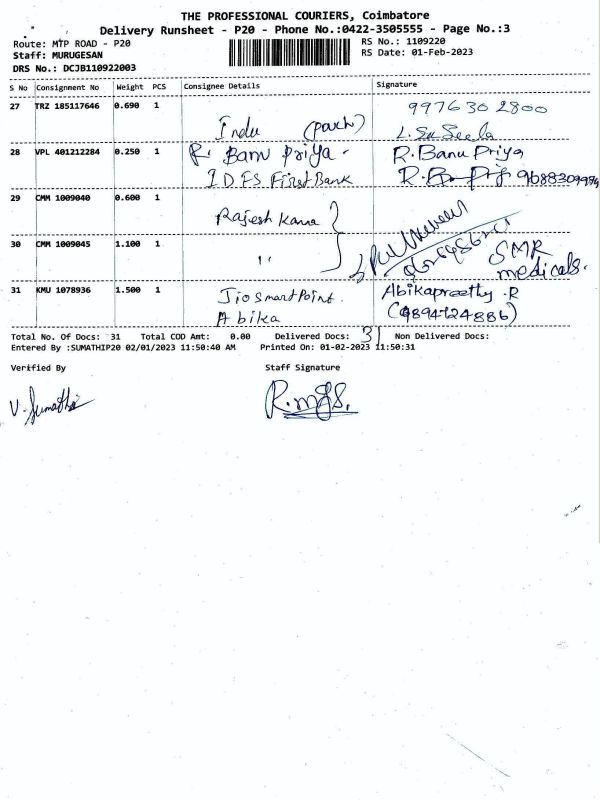 THE PROFESSIONAL COURIERS, Coimbatore
Delivery Runsheet - P20 - Phone No.:0422-3505555 - Page No.:3
Route: MTP ROAD - P20
Staff: MURUGESAN
DRS No.: DCJB110922003
RS No.: 1109220
RS Date: 01-Feb-2023
S No Consignment No Weight PCS Consignee Details Signature
27 TRZ 185117646 0.690 1 9976302800
Indu
28 VPL 401212284 0.250 1 R. Banu Priya - R. Banu Priya
IDFS First Bank
29 CMM 1009040 0.600 1
Rajesh Kanna
30 CMM 1009045 1.100 1 ,, SMR
medicals.
31 KMU 1078936 1.500 1 Jiosmart Point. Abikapreethy .R
Abika (9894124886)
Total No. Of Docs: 31 Total COD Amt: 0.00 Delivered Docs: 31 Non Delivered Docs:
Entered By :SUMATHIP20 02/01/2023 11:50:40 AM Printed On: 01-02-2023 11:50:31
Verified By Staff Signature
V. Sumathi